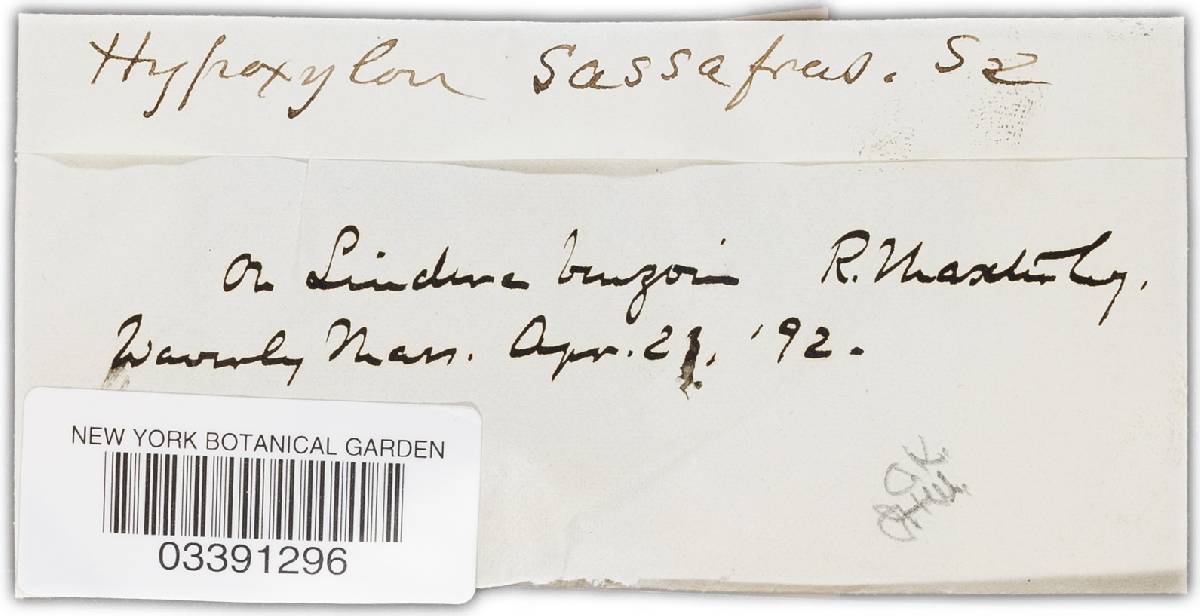 Hypoxylon Sassafras. Sz
on Lindera benzoin R. Thaxter leg.
Waverly Mass. Apr. 2 , '92.
NEW YORK BOTANICAL GARDEN
03391296
O.K.